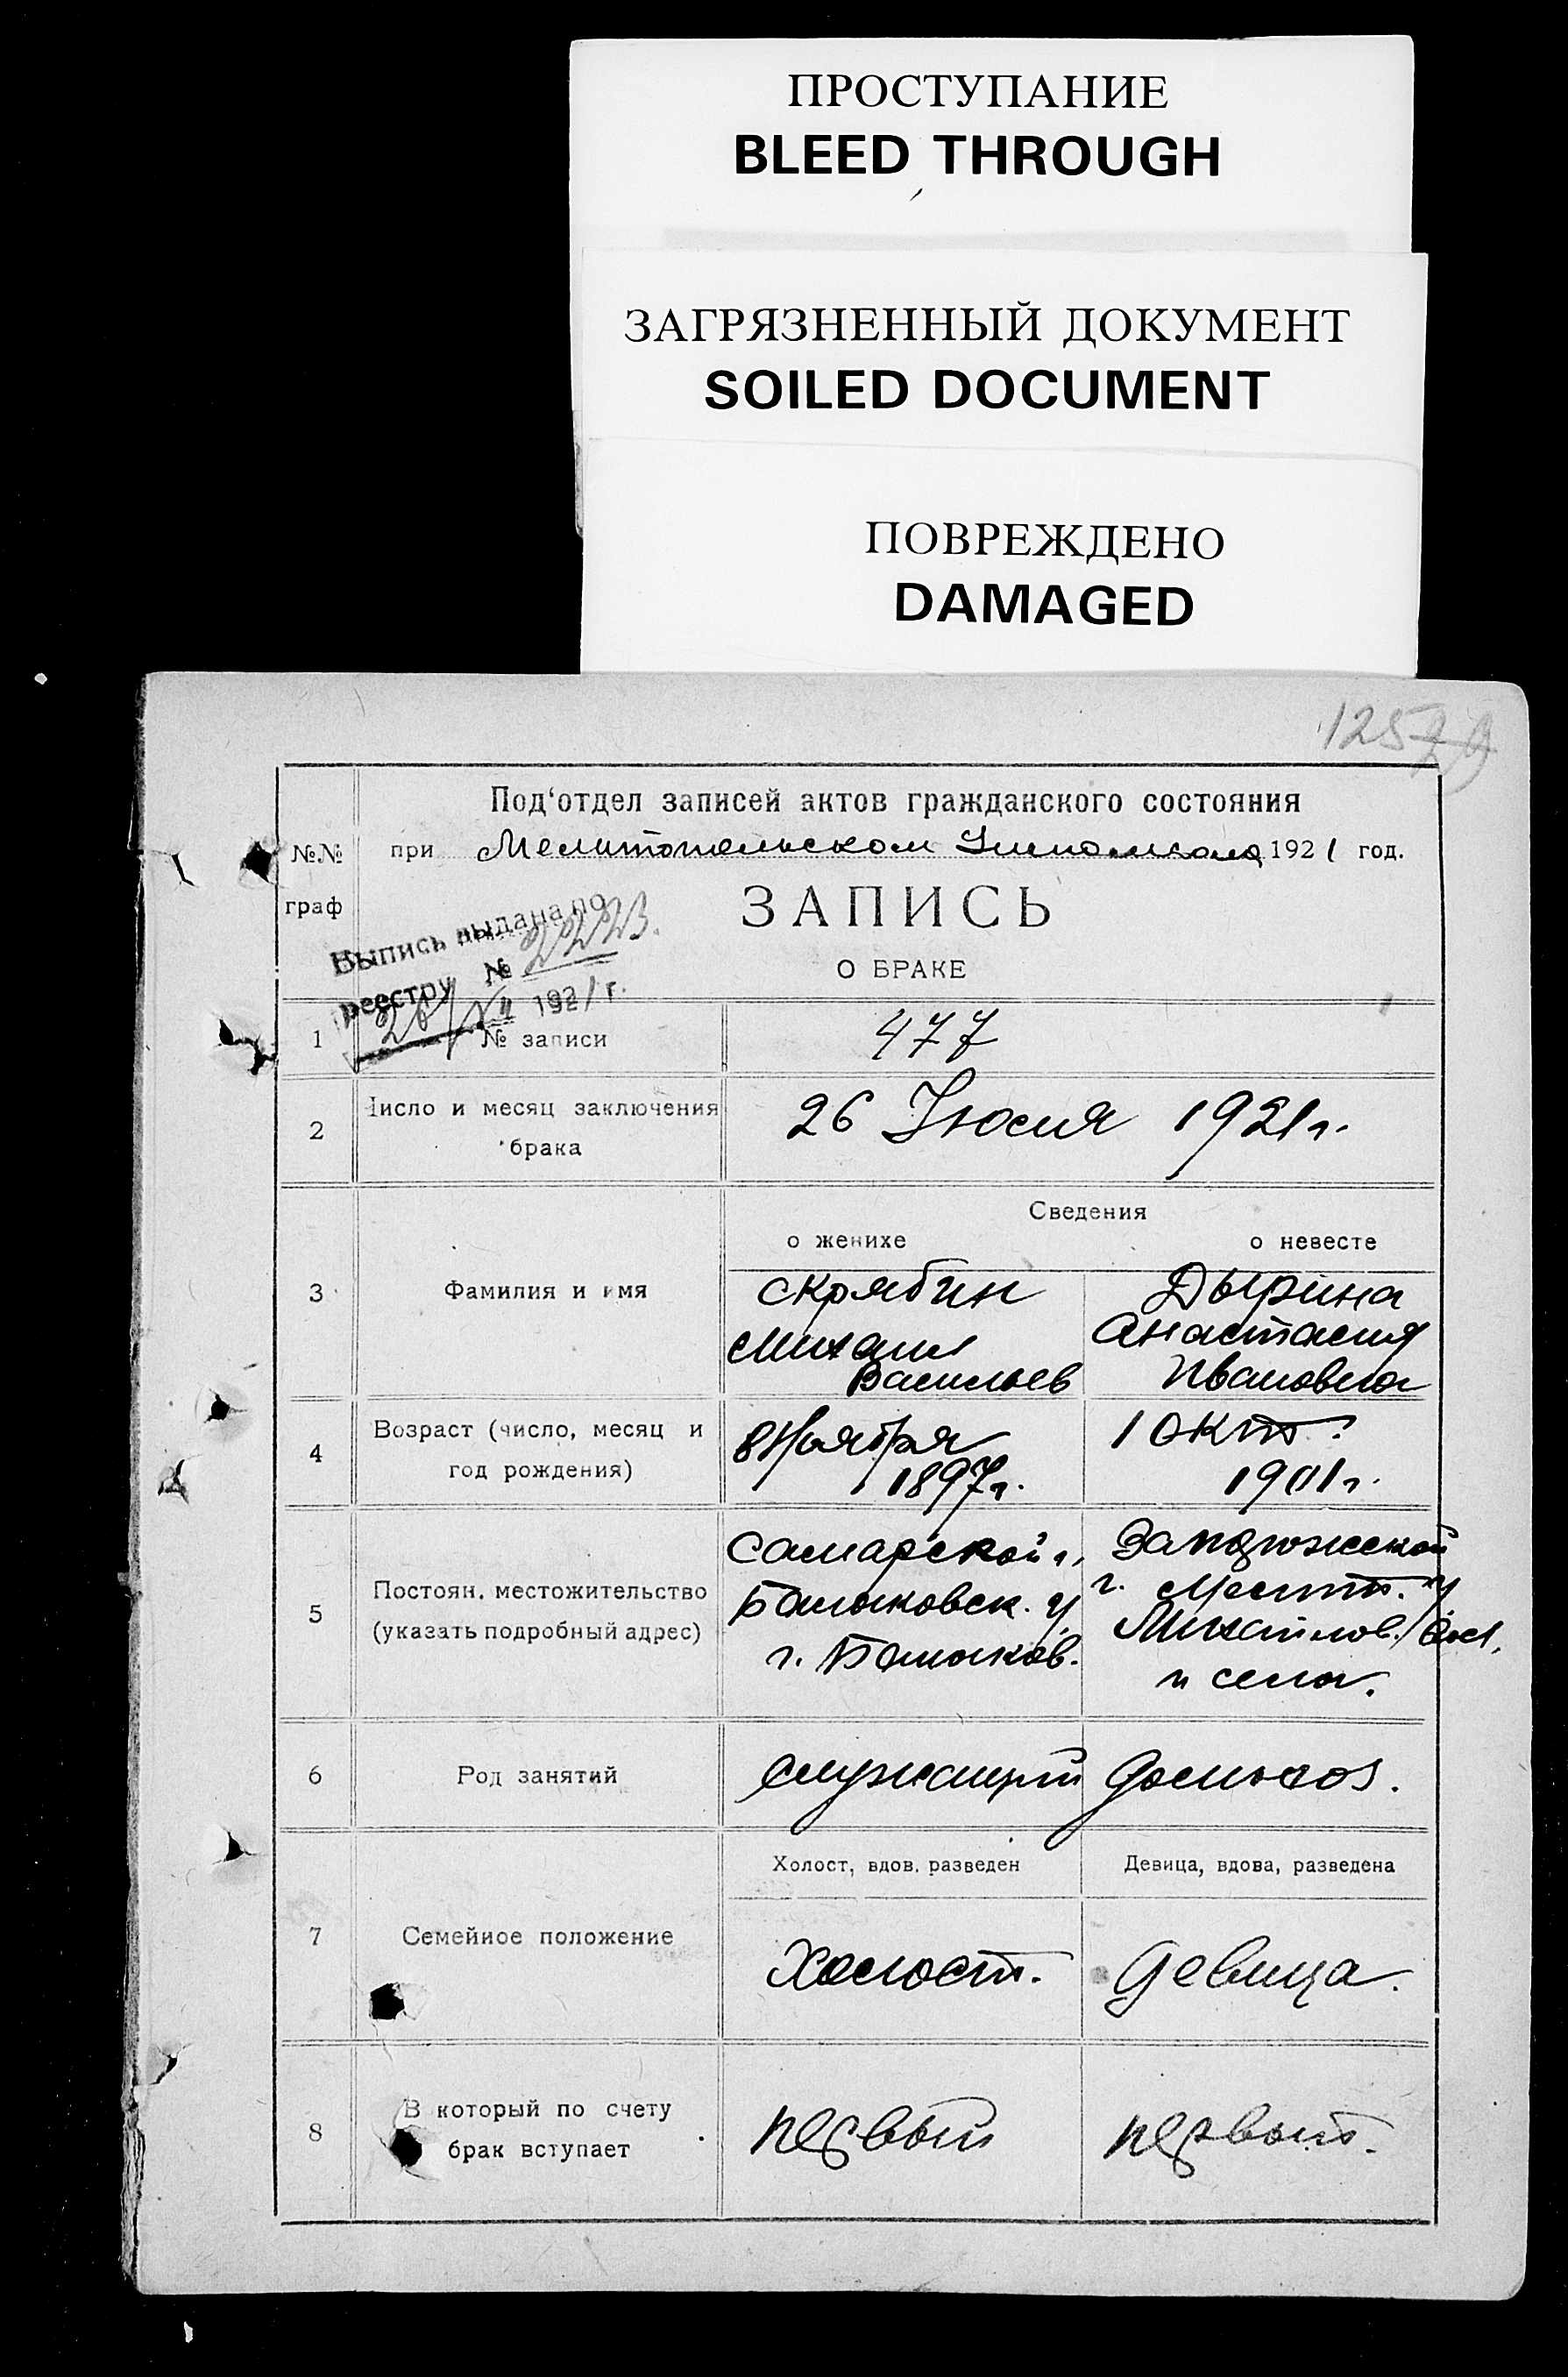 ПРОСТУПАНИЕ
BLEED THROUGH
ЗАГРЯЗНЕННЫЙ ДОКУМЕНТ
SOILED DOCUMENT
ПОВРЕЖДЕНО
DAMAGED
125
Под'отдел записей актов гражданского состояния
№№ при Мелитопольском 1921 год.
граф
ЗАПИСЬ
О БРАКЕ
Выпись выдана по
реестру № 2223.
1921 г.
1 № записи 477
2 Число и месяц заключения брака 26 Июля 1921 г.
Сведения
о женихе о невесте
3 Фамилия и имя
Скрябин Дырина
Михаил Анастасия
Васильев Ивановна
4 Возраст (число, месяц и
год рождения)
8 Ноября 1 окт.
1897 г. 1901 г.
5 Постоян. местожительство
(указать подробный адрес)
Самарской г. Запорожской
Балаковск. у. г. Мелит. у
г. Балаков. Михайлов. вол.
и села.
6 Род занятий служащий домохоз.
Холост, вдов, разведен Девица, вдова, разведена
7 Семейное положение Холост. девица.
8 В который по счету
брак вступает
первый первый.